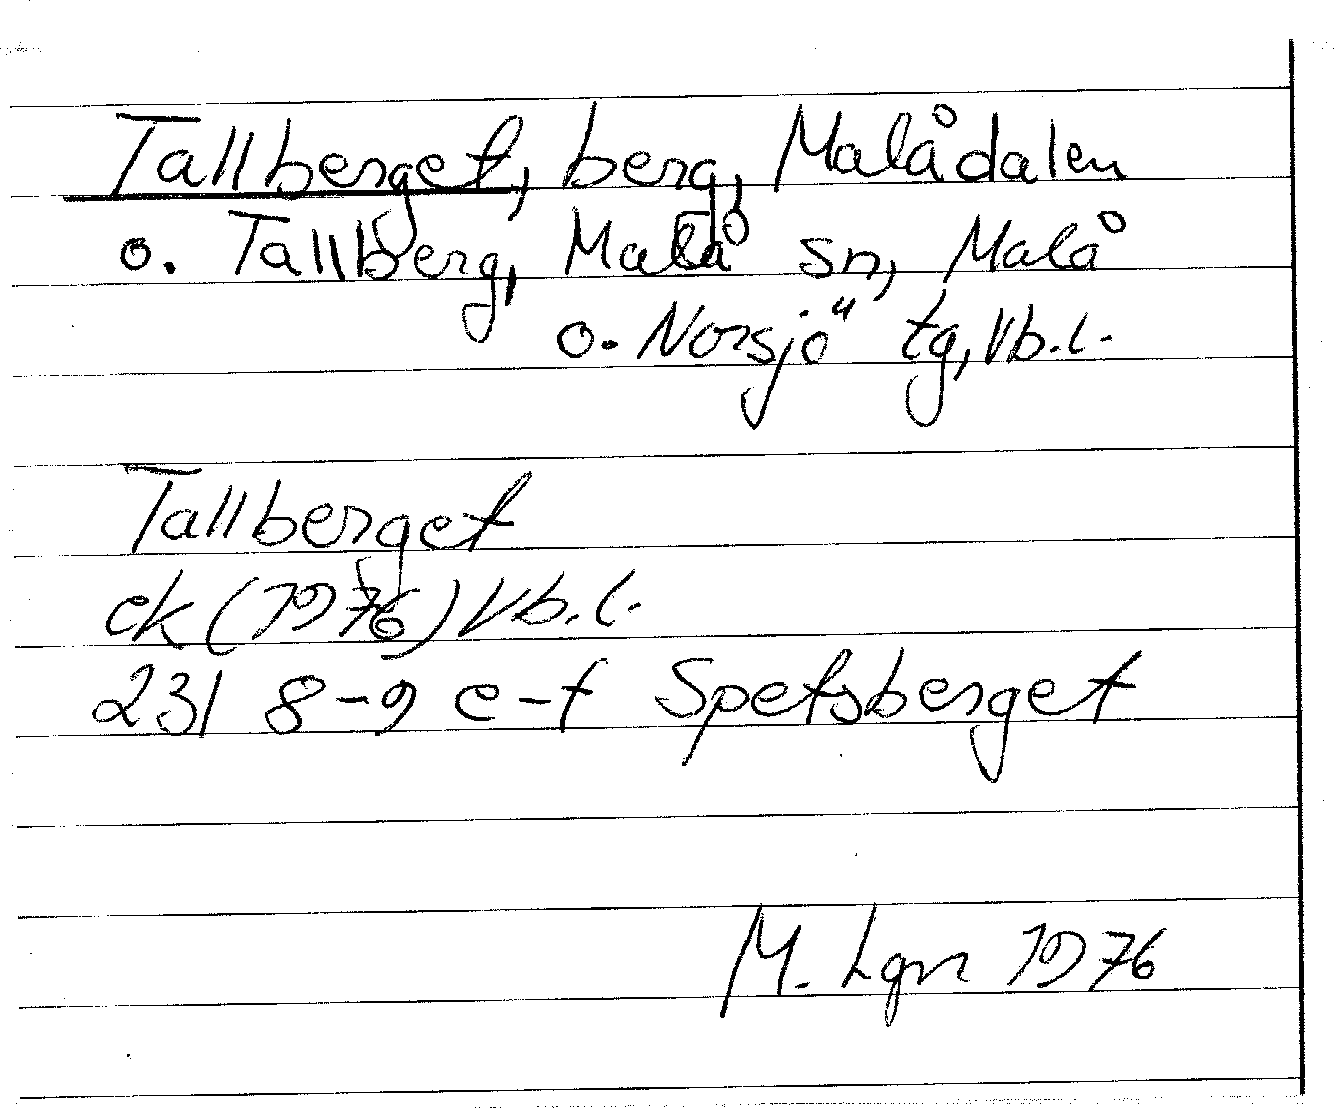 Tallberget, berg, Malådalen
o. Tallberg, Malå sn, Malå
o. Norsjö tg, Vb.l.
Tallberget
ek (1976) Vb.l.
23I 8-9 e-f Spetsberget
M. Lgn 1976